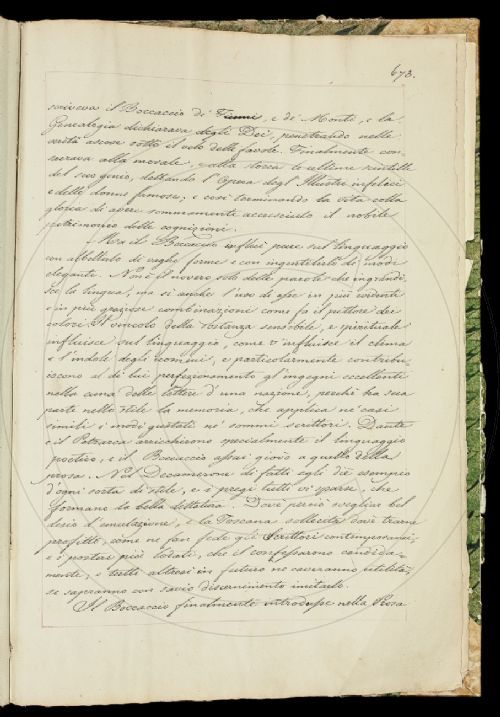 678.
scriveva il Boccaccio di Fiumi, e di Monti, e la
Genealogia dichiarava degli Dei, penetrando nelle
verità ascose sotto il velo delle favole. Finalmente con=
sacrava alla morale, e alla storia le ultime scintille
del suo genio, dettando l'opera degl'Illustri infelici
e delle donne famose, e così terminando la vita colla
gloria di aver sommamente accresciuto il nobile
patrimonio delle cognizioni.
Ma il Boccaccio influì pure sul linguaggio
con abbellirlo di vaghe forme e con ingentilirlo di modi
eleganti. Non è il novero solo delle parole che ingrandi=
sce la lingua, ma si anche l'uso di esse in più evidente
e in più graziosa combinazione come fa il pittore dei
colori. Il vincolo della sostanza sensibile, e spirituale
influisce sul linguaggio, come v'influisce il clima
e l'indole degli uomini, e particolarmente contribu=
iscono al di lui perfezionamento gl'ingegni eccellenti
nella cura delle lettere d'una nazione, perchè ha sua
parte nello stile la memoria, che applica ne' casi
simili i modi gustati ne' sommi scrittori. Dante
e il Petrarca arricchirono specialmente il linguaggio
poetico, e il Boccaccio assai giovò a quello della
prosa. Nel Decamerone di fatti egli diè esempio
d'ogni sorta di stile, e i pregi tutti vi sparse, che
formano la bella dettatura. Dové perciò svegliar bel
desio d'emulazione, e la Toscana sollecita dovè trarne
profitto, come ne fan fede gli Scrittori contemporanei,
e i posteri più lodati, che il confessarono candida=
mente, e tutti altresì in futuro ne caveranno utilità,
se sapranno con savio discernimento imitarlo.
Il Boccaccio finalmente introdusse nella Prosa